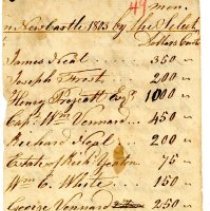 49 mon.
in Newcastle 1803 by the Select
Dollars Cents
James Neal ... 350 "
Joseph Frost ... 200 "
Henry Prescott Esqr 1000 "
Capt. Wm Vennard ... 450 "
Richard Neal ... 200 "
Estate of Rich Yeaton 75 "
Wm C. White ... 150 "
George Vennard 250 "